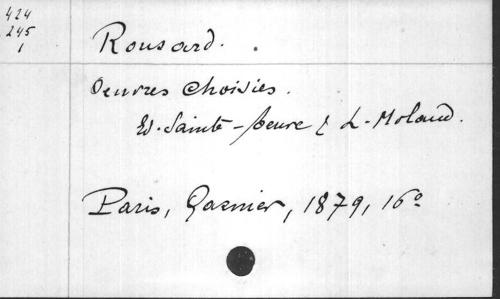 424
245
1
Ronsard.
Oeuvres choisies.
Ed. Sainte-Beuve & L. Moland.
Paris, Garnier, 1879, 16º